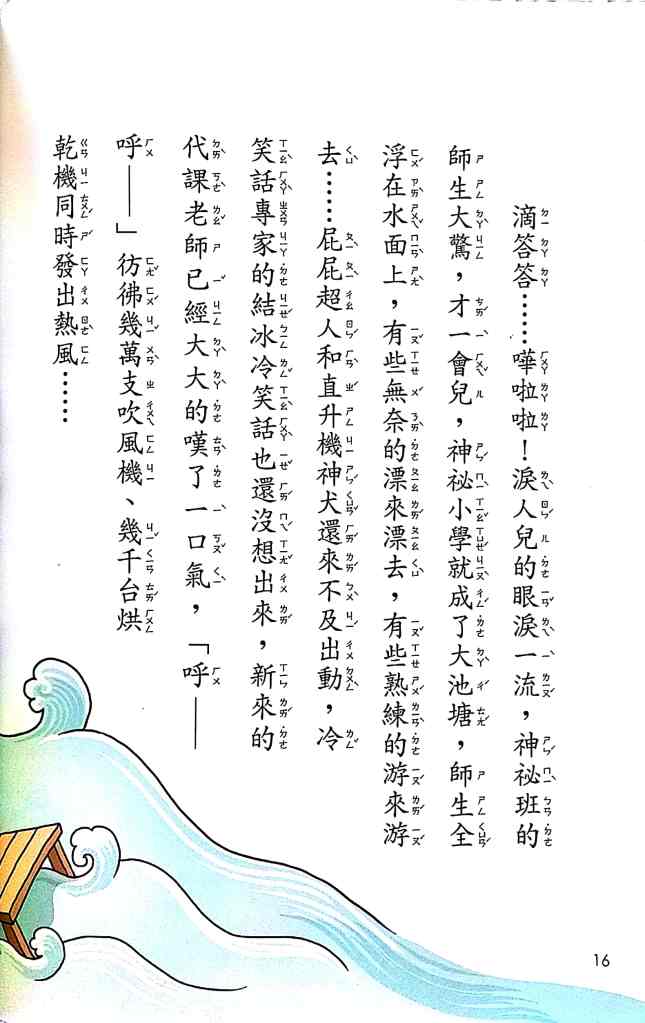 滴答答……嘩啦啦！淚人兒的眼淚一流，神祕班的
師生大驚，才一會兒，神祕小學就成了大池塘，師生全
浮在水面上，有些無奈的漂來漂去，有些熟練的游來游
去……屁屁超人和直升機神犬還來不及出動，冷
笑話專家的結冰冷笑話也還沒想出來，新來的
代課老師已經大大的嘆了一口氣，「呼——
呼——」彷彿幾萬支吹風機、幾千台烘
乾機同時發出熱風……
16